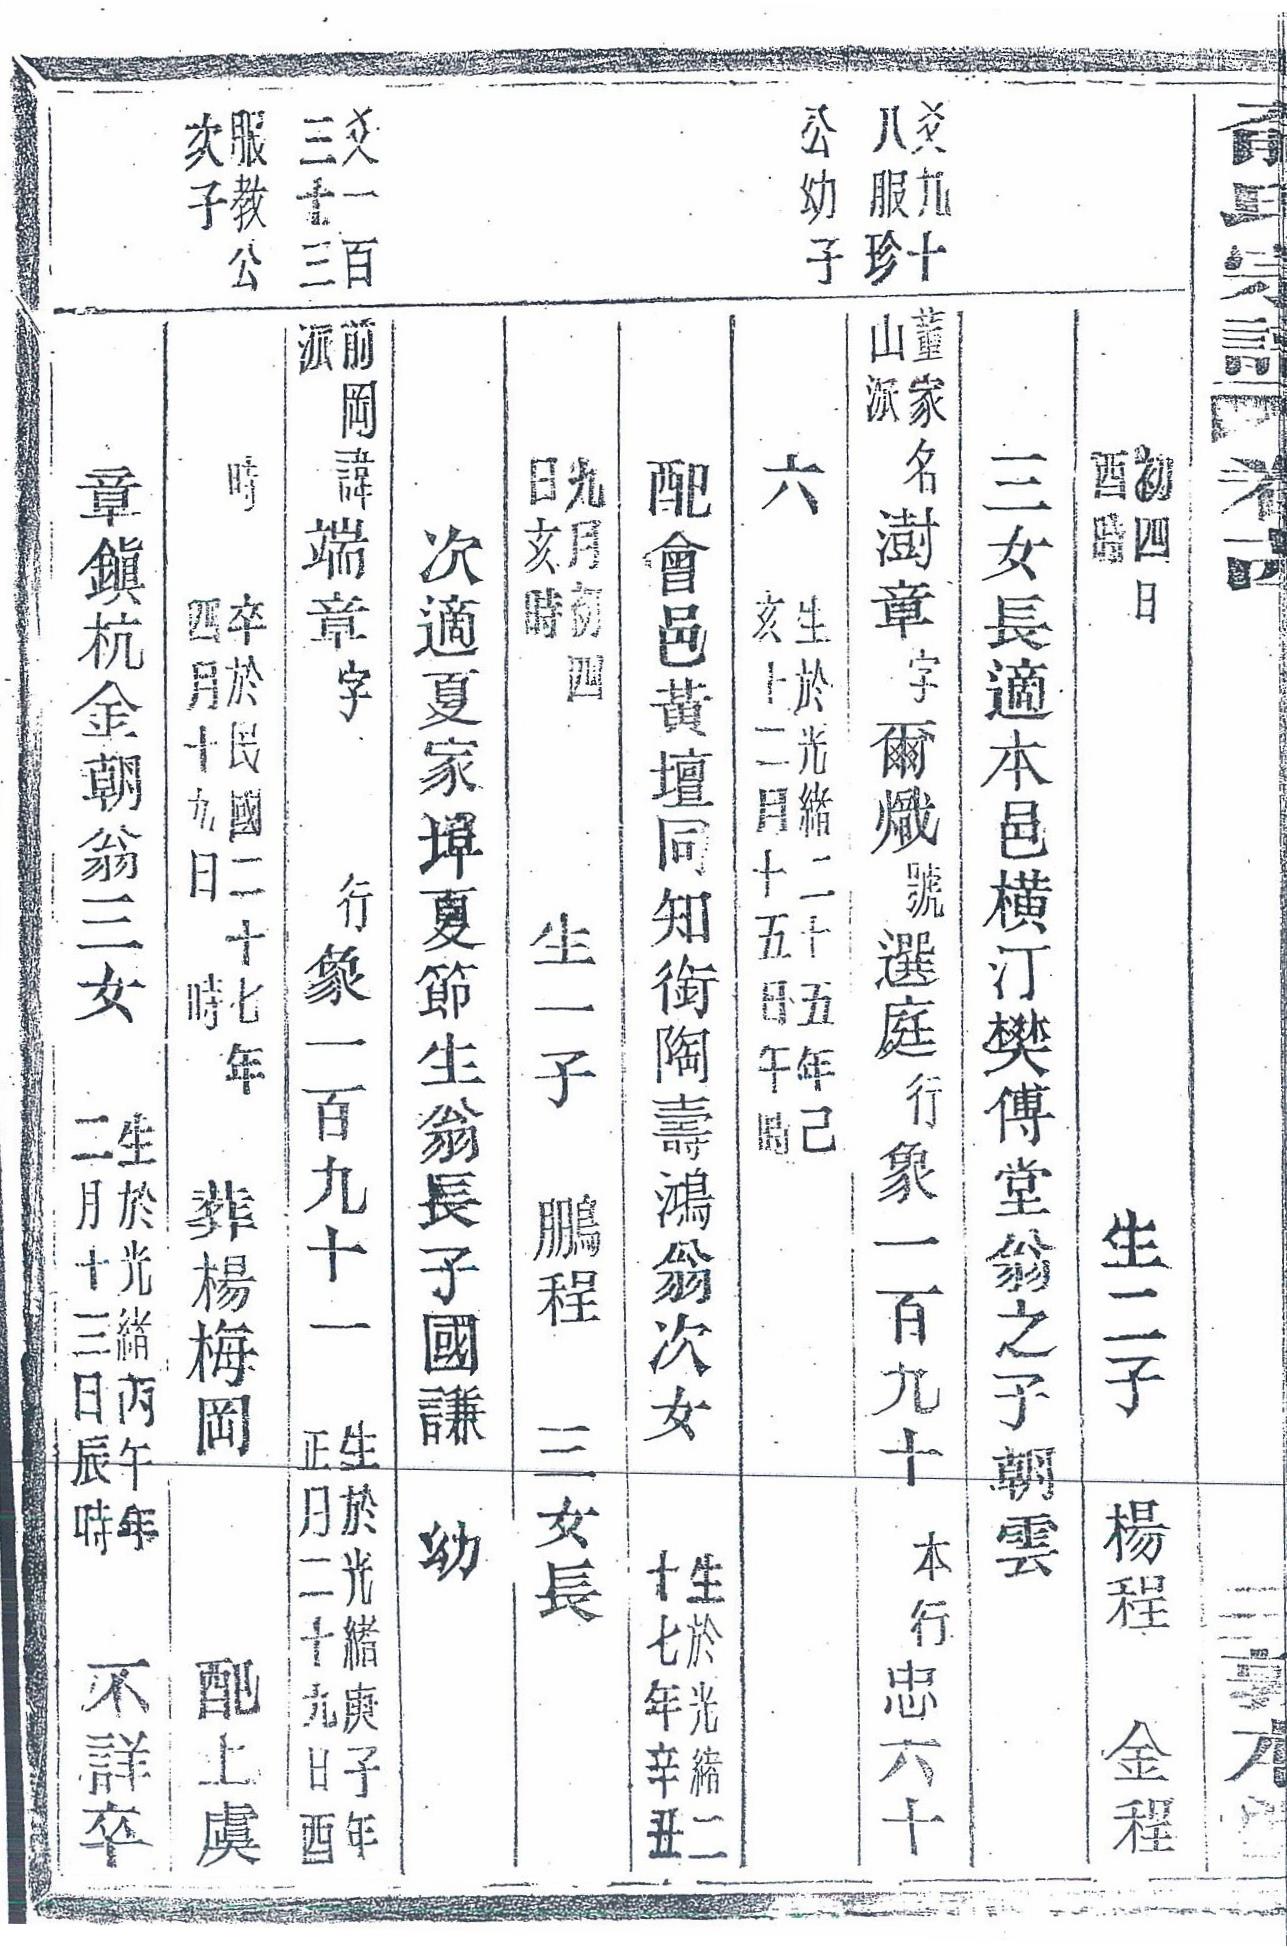 初四日
酉時
生二子
楊程
金程
三女長適本邑橫汀樊傅堂翁之子朝雲
爻九十
八服珍
公幼子
董家
山派
名澍章字爾熾號選庭行象一百九十
本行忠六十
六
生於光緒二十五年己
亥十二月十五日午時
配會邑黃壇同知銜陶壽鴻翁次女
生於光緒二
十七年辛丑
九月初四
日亥時
生一子
鵬程
三女長
次適夏家埠夏節生翁長子國謙
幼
爻一百
三十三
服教公
次子
前岡
派
諱端章字
行象一百九十一
生於光緒庚子年
正月二十九日酉
時
卒於民國二十七年
四月十九日
時
葬楊梅岡
配上虞
章鎮杭金朝翁三女
生於光緒丙午年
二月十三日辰時
不詳卒